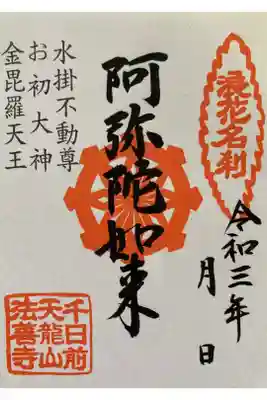 浪花名刹
令和三年
月 日
阿弥陀如来
水掛不動尊
お初大神
金毘羅天王
千日前
天龍山
法善寺